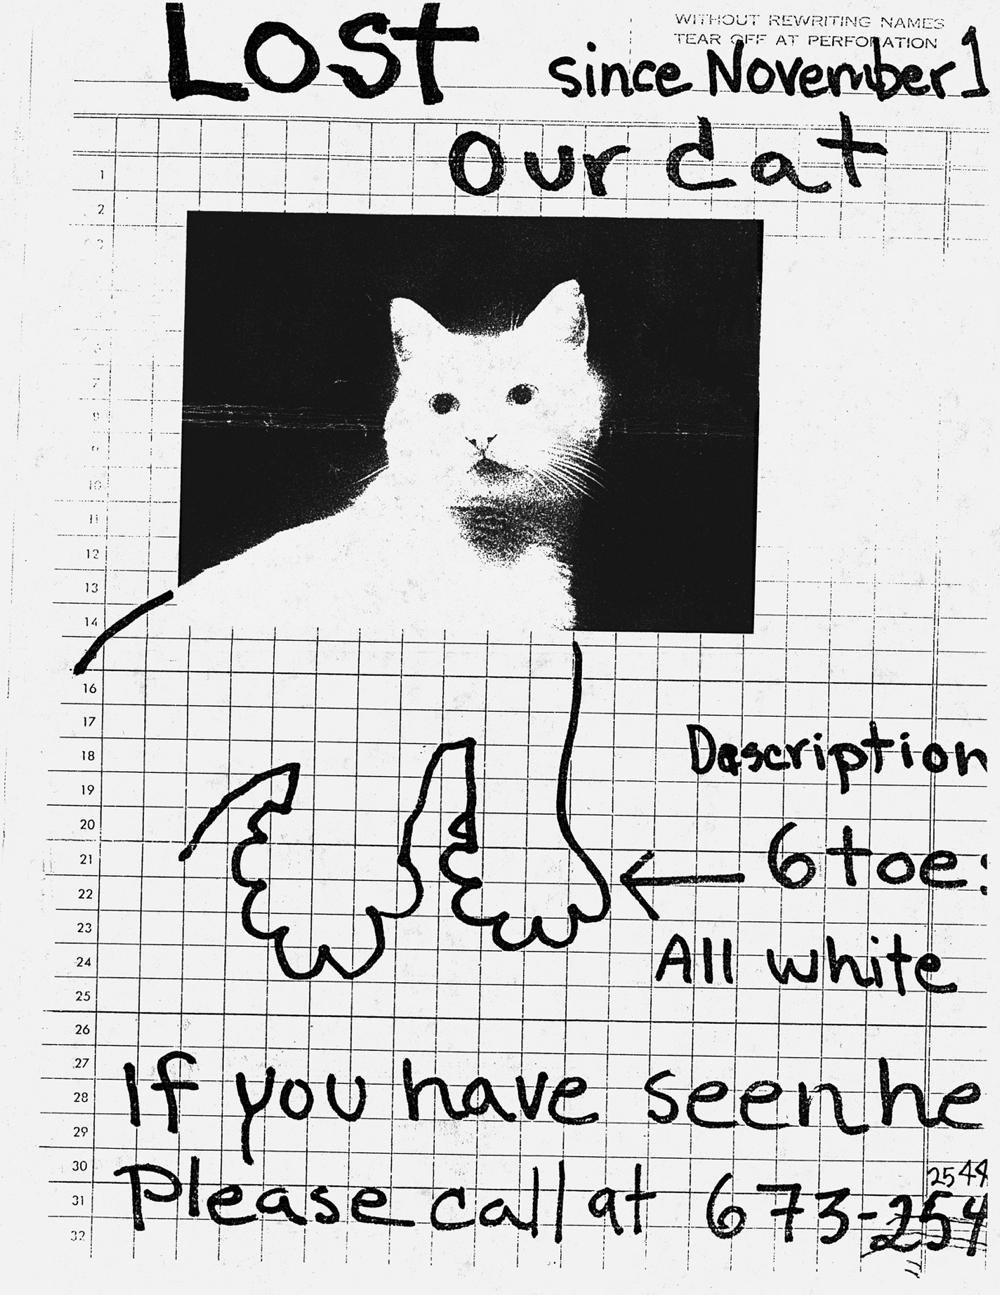 WITHOUT REWRITING NAMES
TEAR OFF AT PERFORATION
Lost since November 1
our cat
1
2
7
9
10
11
12
13
14
16
17
18
19
20
21
22
23
24
25
26
27
28
29
30
31
32
Description
6 toe
All white
If you have seen he
Please call at 673-254
2544